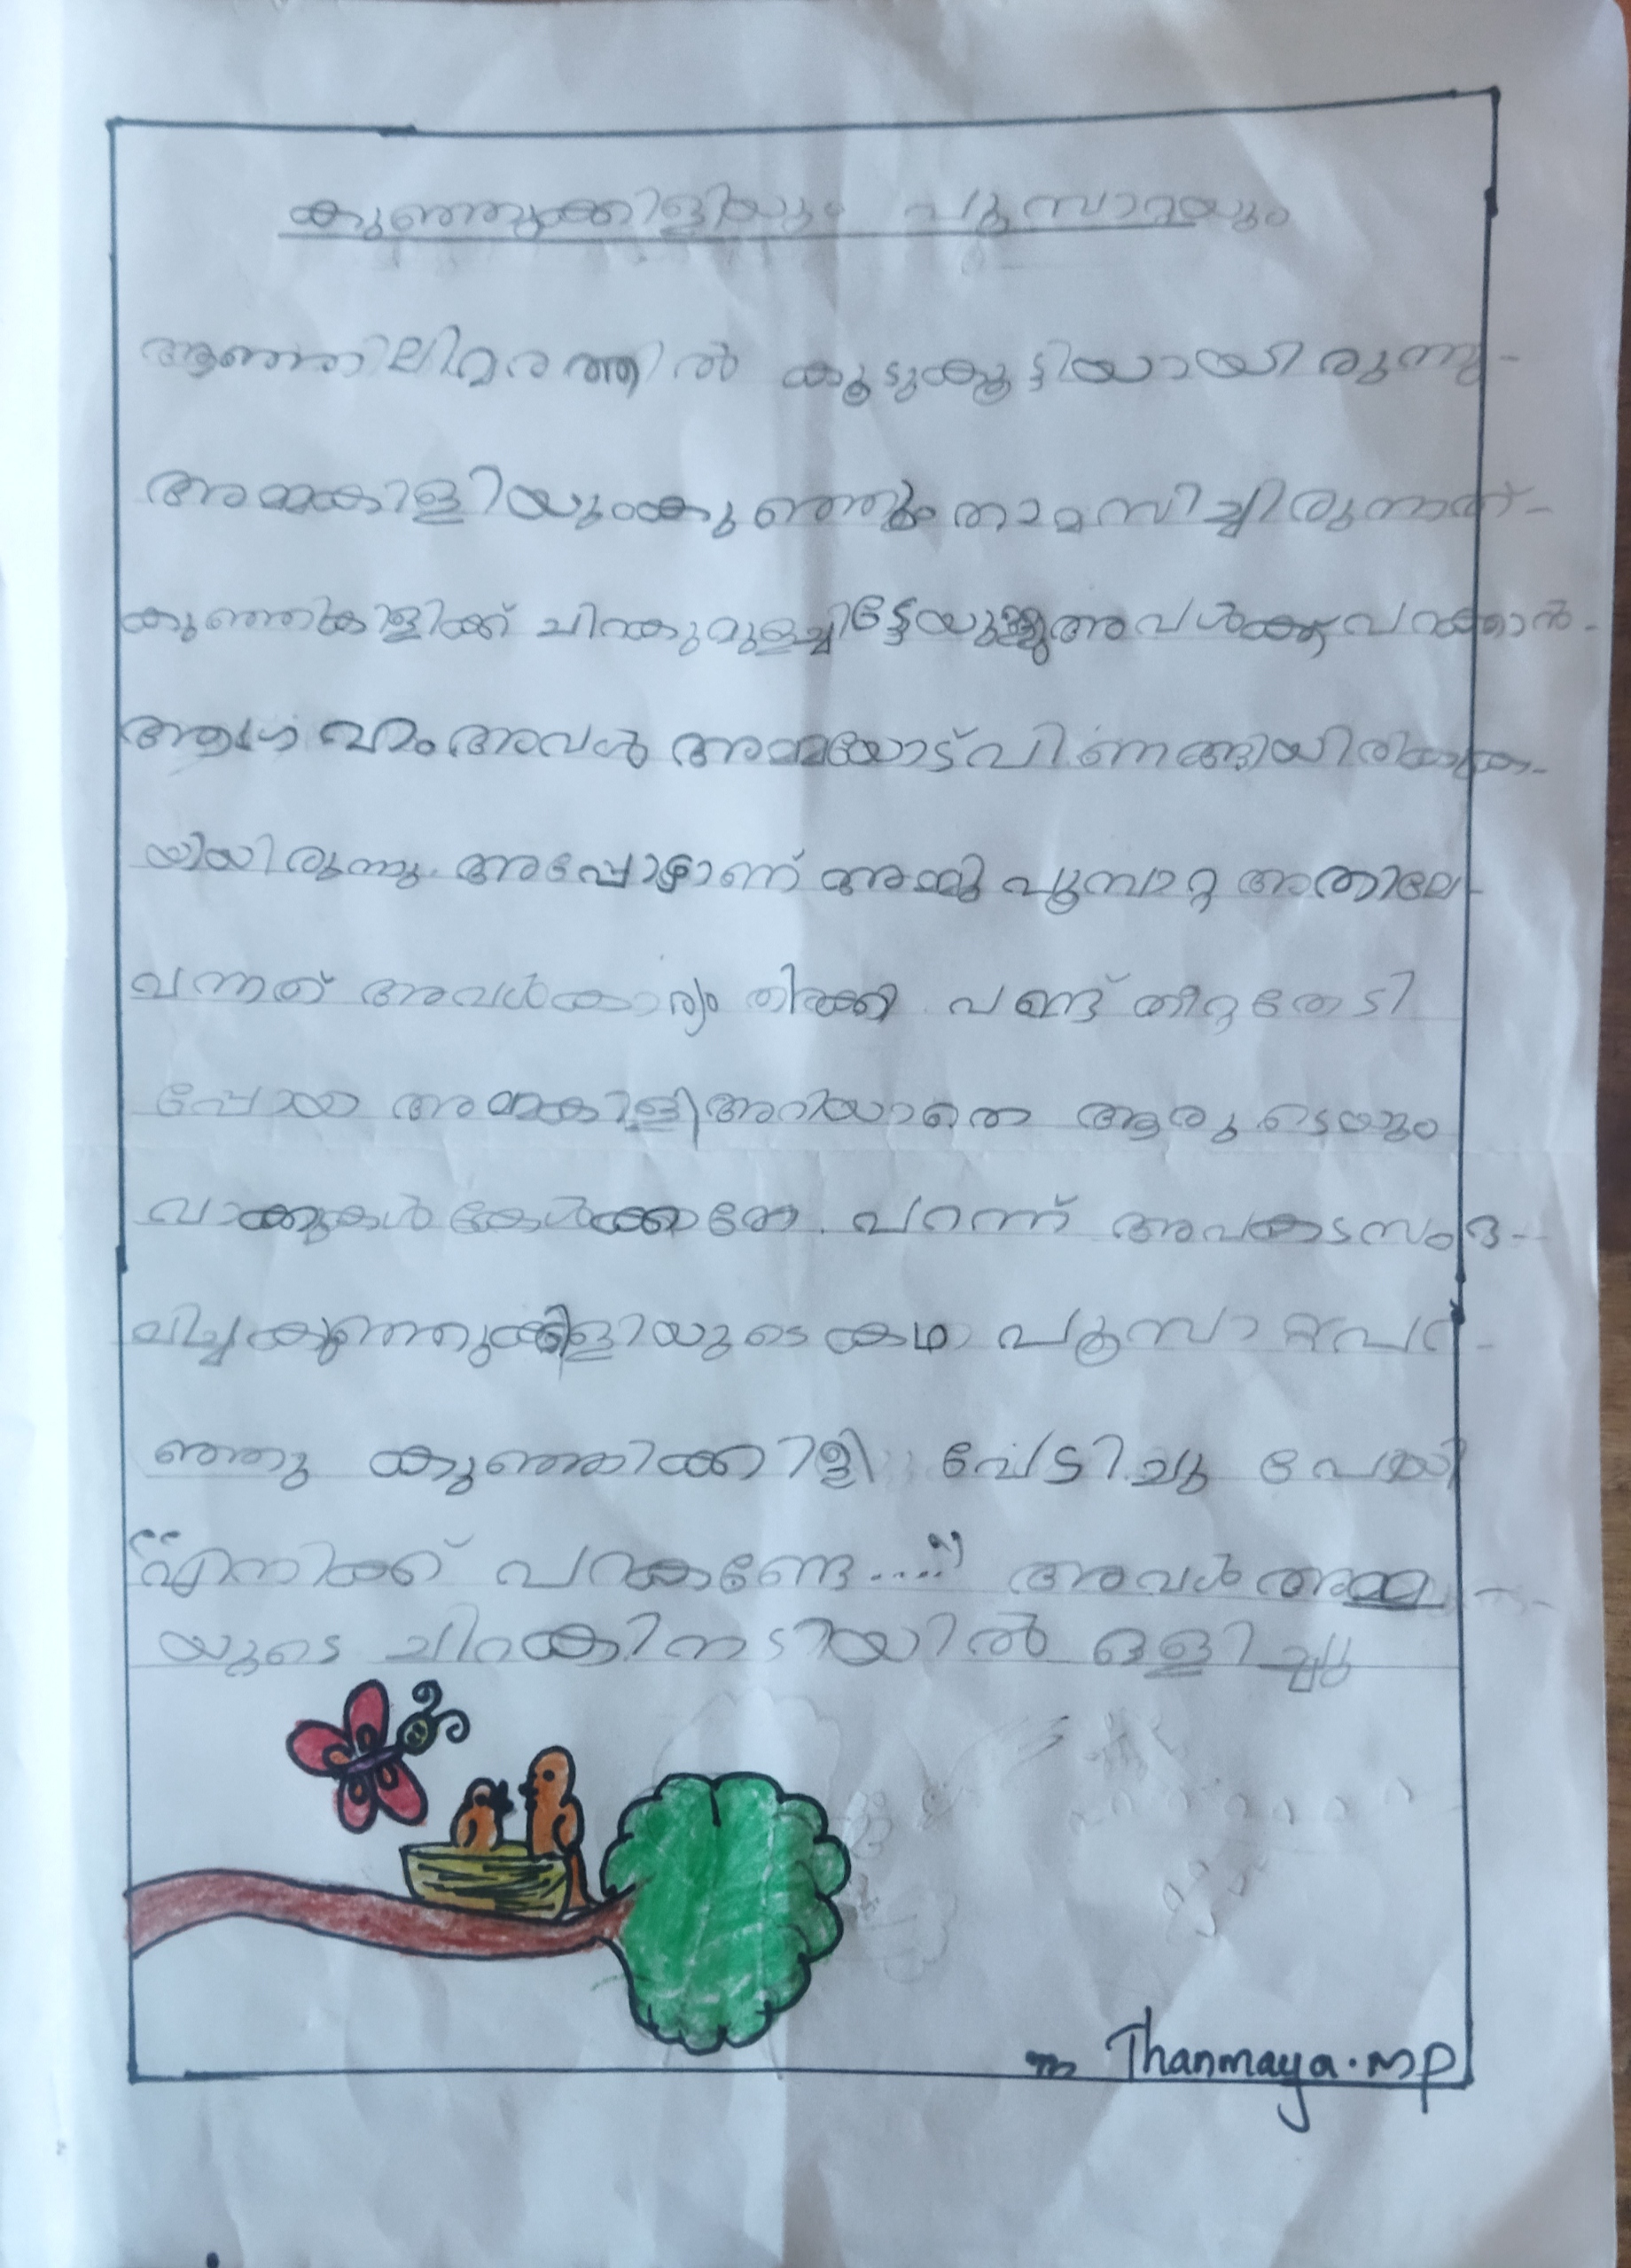 കുഞ്ഞുക്കിളിയും പൂമ്പാറ്റയും
ആഞ്ഞിലിമരത്തിൽ കൂടുകൂട്ടിയായിരുന്നു-
അമ്മകിളിയുംകുഞ്ഞുംതാമസിച്ചിരുന്നത്-
കുഞ്ഞികിളിക്ക് ചിറകുമുളച്ചിട്ടേയുള്ളുഅവൾക്കുപറക്കാൻ-
ആഗ്രഹംഅവൾ അമ്മയോട്പിണങ്ങിയിരിക്കുക-
യിയിരുന്നു. അപ്പോഴാണ് അമ്മു പൂമ്പാറ്റ അതിലെ-
വന്നത് അവൾകാര്യം തിരക്കി. പണ്ട് തീറ്റതേടി
പോയ അമ്മകിളി അറിയാതെ ആരുടെയും
വാക്കുകൾകേൾക്കാതെ. പറന്ന് അപകടസംഭ-
വിച്ചകുഞ്ഞുക്കിളിയുടെകഥ പൂമ്പാറ്റപറ-
ഞ്ഞു കുഞ്ഞിക്കിളി പേടിച്ചു പോയി
"എനിക്ക് പറകണ്ടേ....." അവൾഅമ്മ-
യുടെ ചിറകിനടിയിൽ ഒളിച്ചു
Thanmaya.MP